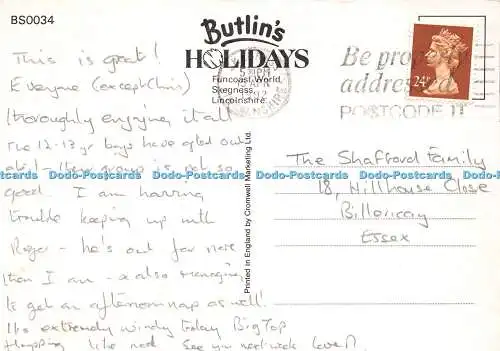 BS0034
Butlin's
HOLIDAYS
Funcoast World,
Skegness,
Lincolnshire.
5.PM
Be prop
address
POSTCODE IT
24P
This is great!
Everyone (except Chris)
thoroughly enjoying it all
The 12-13 yr boys have opted out
their group is not so
good. I am having
trouble keeping up with
Roger - he's out far more
than I am - & also managing
to get an afternoon nap as well!
It's extremely windy today Big Top
flapping like mad. See you next week
The Shafford Family
18, Hillhouse Close
Billericay
Essex
Printed in England by Cromwell Marketing Ltd.
Dodo-Postcards Dodo-Postcards Dodo-Postcards Dodo-Postcards